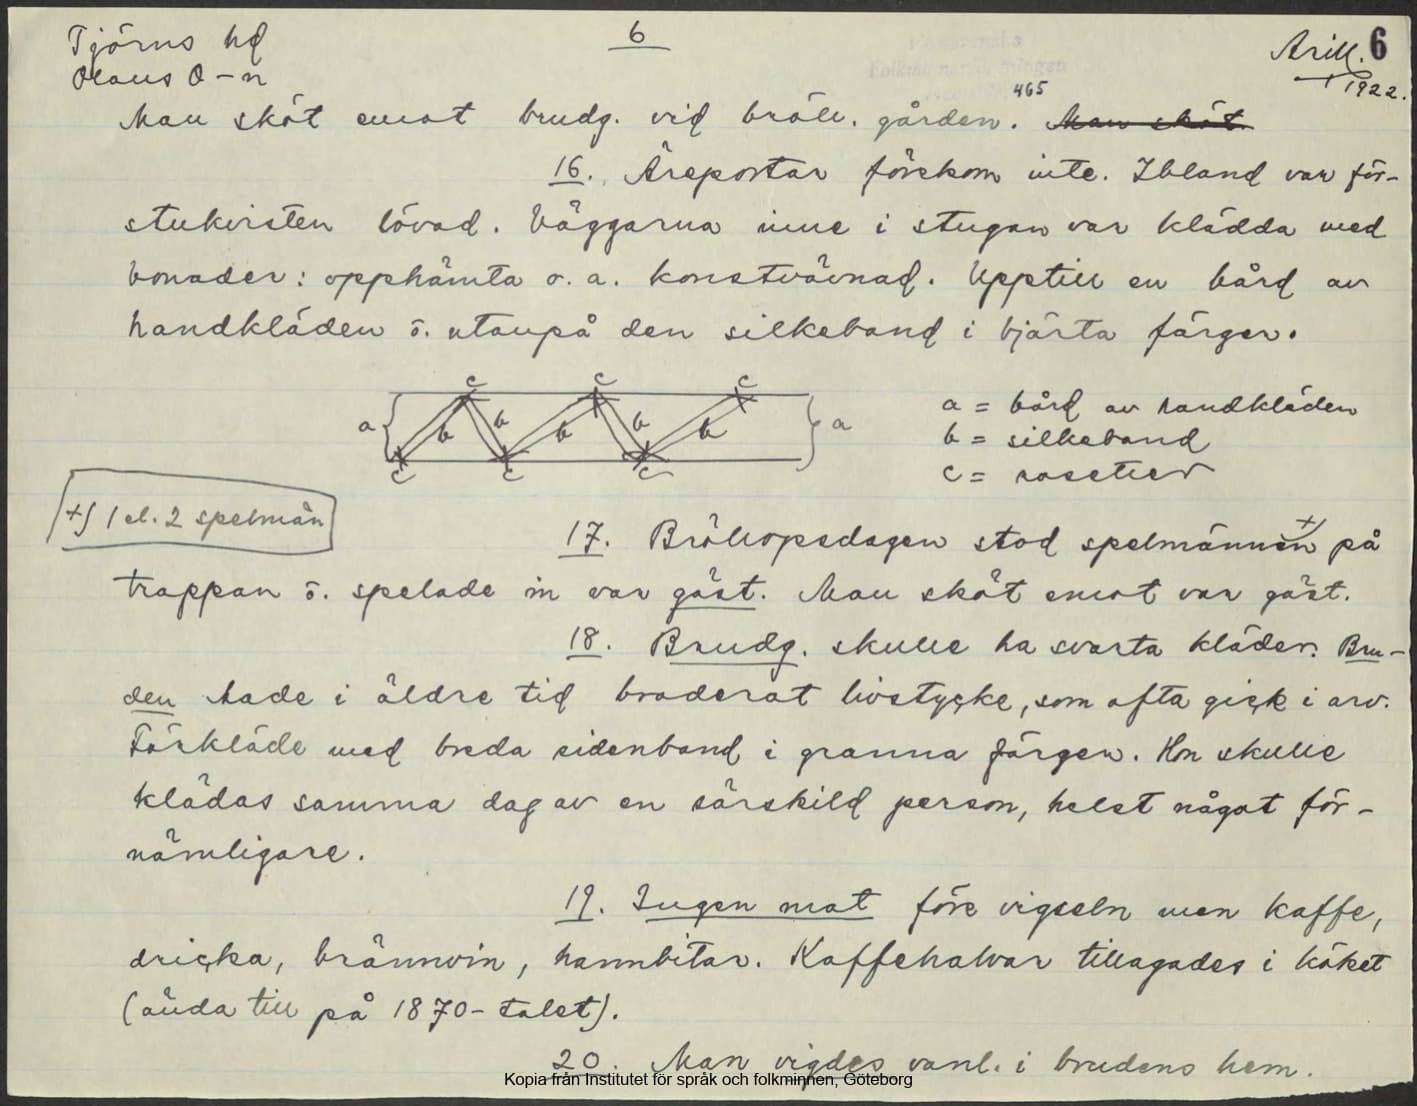 Tjörns hd
6
April. 6
Olaus O-n
1922.
465
Man sköt emot brudg. vid bröll. gården. Man sköt
16. Äreportar förekom inte. Ibland var för-
stukvisten lövad. Väggarna inne i stugan var klädda med
bonader: opphämta o. a. konstvävnad. Upptill en bård av
handkläden o. utanpå den silkeband i bjärta färger.
c c c
a b b b b b a
c c c
a = bård av handkläden
b = silkeband
c = rosetter
+) 1 el. 2 spelmän
17. Bröllopsdagen stod spelmännen +) på
trappan o. spelade in var gäst. Man sköt emot var gäst.
18. Brudg. skulle ha svarta kläder. Bru-
den hade i äldre tid broderat livstycke, som ofta gick i arv.
Förkläde med breda sidenband i granna färger. Hon skulle
klädas samma dag av en särskild person, helst något för-
nämligare.
19. Ingen mat före vigseln men kaffe,
dricka, brännvin, hannbitar. Kaffehalvar tillagades i köket
(ända till på 1870-talet).
20. Man vigdes vanl. i brudens hem.
Kopia från Institutet för språk och folkminnen, Göteborg